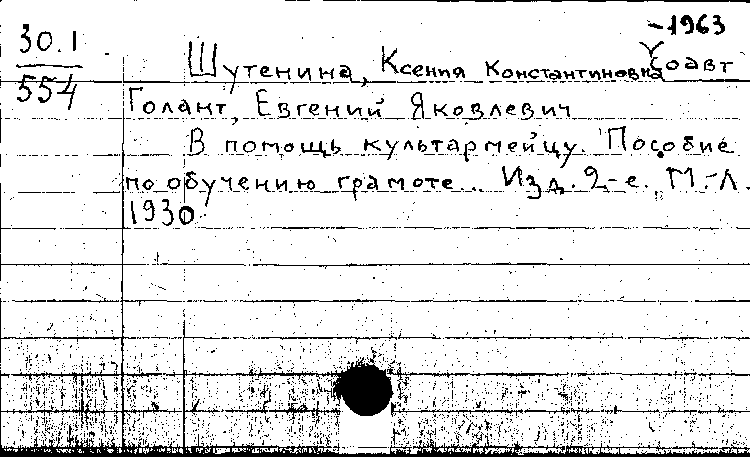 -1963
30.1
554
Шутенина, Ксения Константиновна соавт
Голант, Евгений Яковлевич
В помощь культармейцу. Пособие
по обучению грамоте... Изд. 2-е. М.-Л.
1930